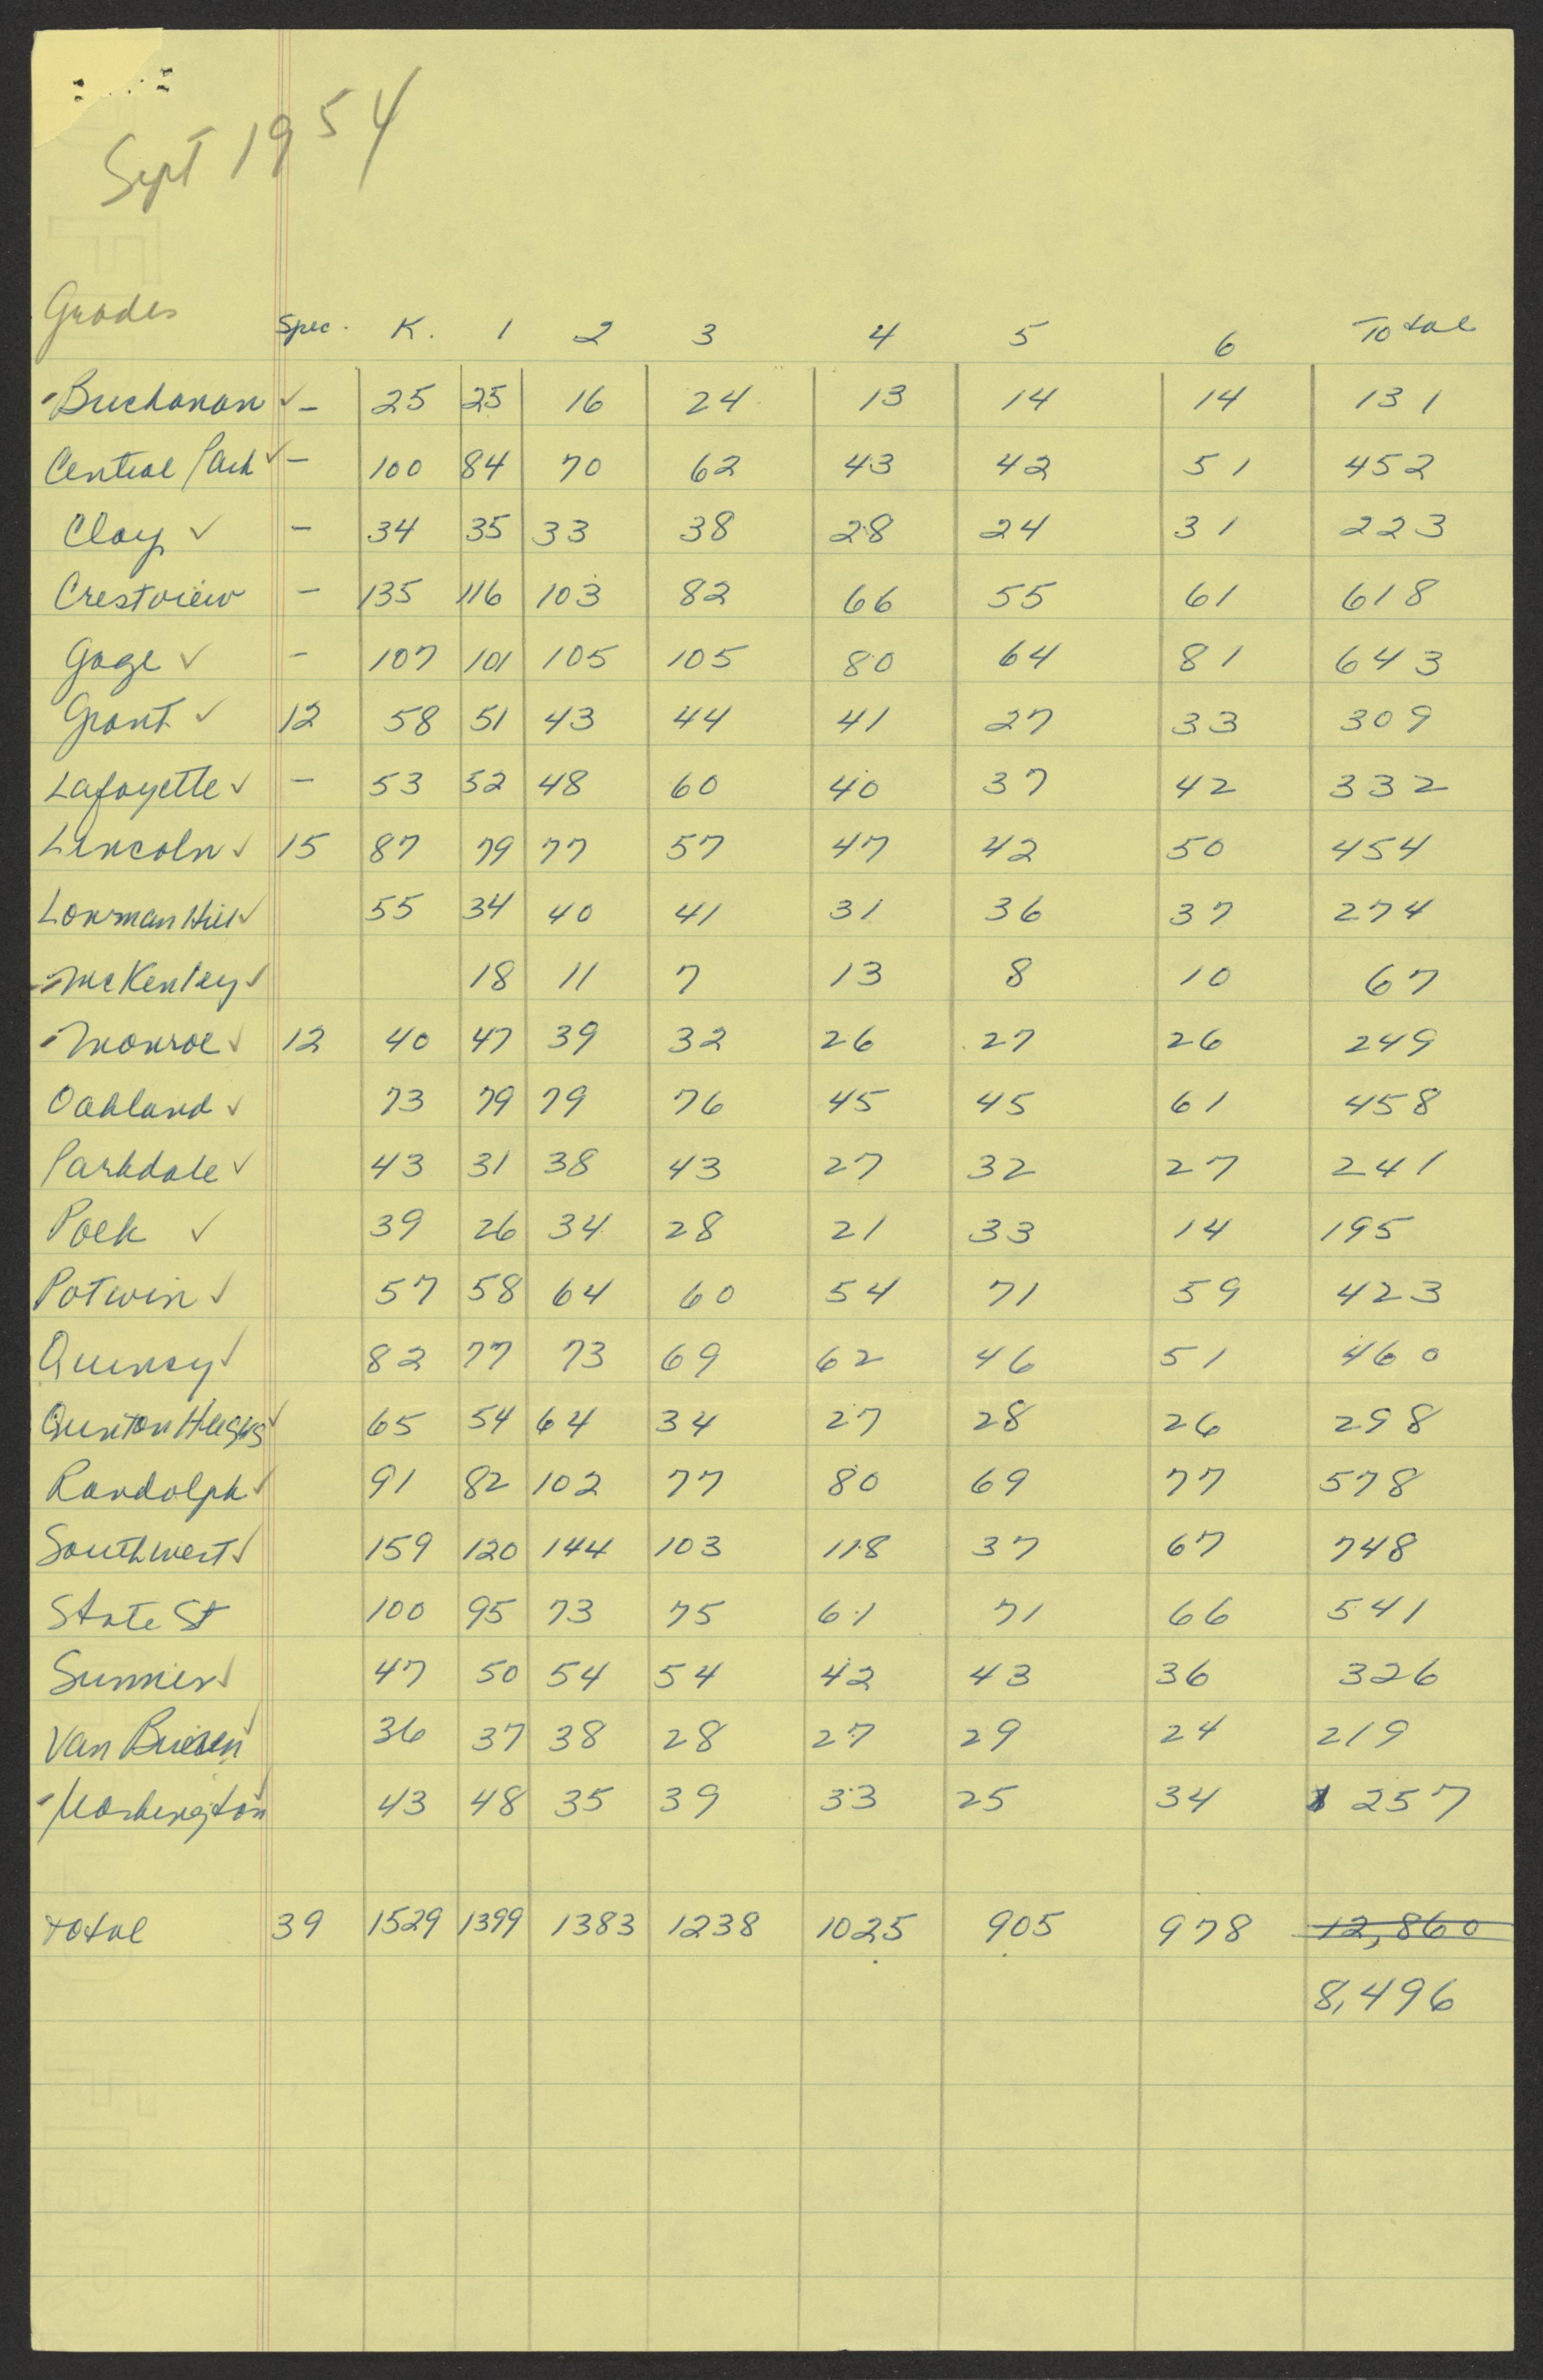 Sept 1954
Grades Spec. K. 1 2 3 4 5 6 Total
Buchanan ✓ - 25 25 16 24 13 14 14 131
Central Park ✓ - 100 84 70 62 43 42 51 452
Clay ✓ - 34 35 33 38 28 24 31 223
Crestview - 135 116 103 82 66 55 61 618
Gage ✓ - 107 101 105 105 80 64 81 643
Grant ✓ 12 58 51 43 44 41 27 33 309
Lafayette ✓ - 53 52 48 60 40 37 42 332
Lincoln ✓ 15 87 79 77 57 47 42 50 454
Lowman Hill ✓ 55 34 40 41 31 36 37 274
McKenley ✓ 18 11 7 13 8 10 67
Monroe ✓ 12 40 47 39 32 26 27 26 249
Oakland ✓ 73 79 79 76 45 45 61 458
Parkdale ✓ 43 31 38 43 27 32 27 241
Polk ✓ 39 26 34 28 21 33 14 195
Potwin ✓ 57 58 64 60 54 71 59 423
Quincy ✓ 82 77 73 69 62 46 51 460
Quinton Heights ✓ 65 54 64 34 27 28 26 298
Randolph ✓ 91 82 102 77 80 69 77 578
Southwest ✓ 159 120 144 103 118 37 67 748
State St 100 95 73 75 61 71 66 541
Sumner ✓ 47 50 54 54 42 43 36 326
Van Buren ✓ 36 37 38 28 27 29 24 219
Washington ✓ 43 48 35 39 33 25 34 257
total 39 1529 1399 1383 1238 1025 905 978 12,860
8,496